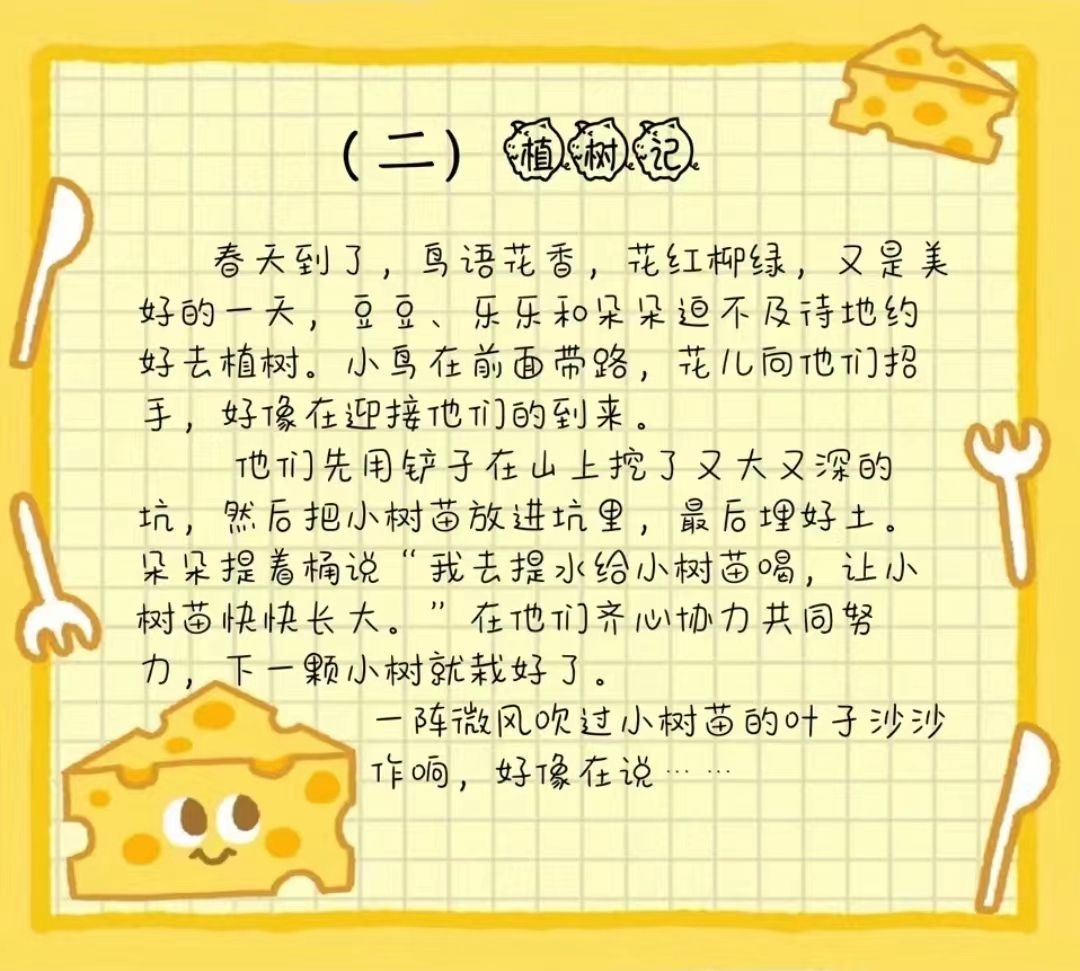 （二）植树记
春天到了，鸟语花香，花红柳绿，又是美
好的一天，豆豆、乐乐和朵朵迫不及待地约
好去植树。小鸟在前面带路，花儿向他们招
手，好像在迎接他们的到来。
他们先用铲子在山上挖了又大又深的
坑，然后把小树苗放进坑里，最后埋好土。
朵朵提着桶说“我去提水给小树苗喝，让小
树苗快快长大。”在他们齐心协力共同努
力，下一颗小树就栽好了。
一阵微风吹过小树苗的叶子沙沙
作响，好像在说……